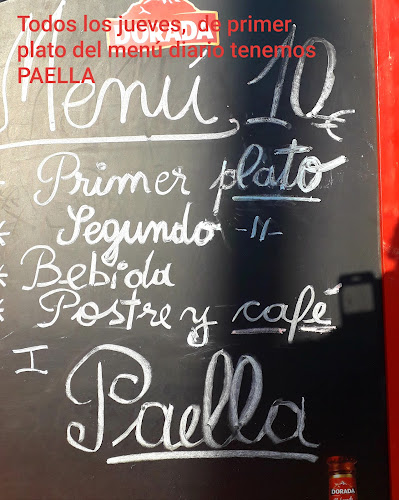 Todos los jueves, de primer
plato del menú diario tenemos
PAELLA
DORADA
Menú, 10€
* Primer plato
* Segundo -11-
* Bebida
* Postre y café
I
Paella
DORADA